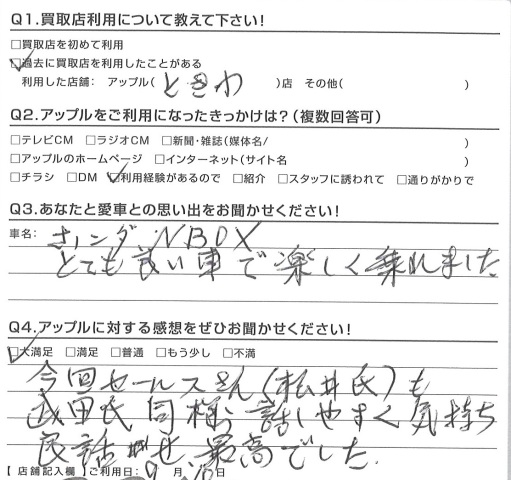 Q1.買取店利用について教えて下さい!
□買取店を初めて利用
☑過去に買取店を利用したことがある
利用した店舗: アップル( ときわ )店 その他( )
Q2.アップルをご利用になったきっかけは?(複数回答可)
□テレビCM □ラジオCM □新聞・雑誌(媒体名/ )
□アップルのホームページ □インターネット(サイト名 )
□チラシ □DM ☑利用経験があるので □紹介 □スタッフに誘われて □通りがかりで
Q3.あなたと愛車との思い出をお聞かせください!
車名: ホンダ NBOX
とても良い車で楽しく乗れました
Q4.アップルに対する感想をぜひお聞かせください!
☑大満足 □満足 □普通 □もう少し □不満
今回セールスさん(松井氏)も
武田氏同様、話しやすく気持ち
良話せ最高でした.
【店舗記入欄】ご利用日: 9月 日